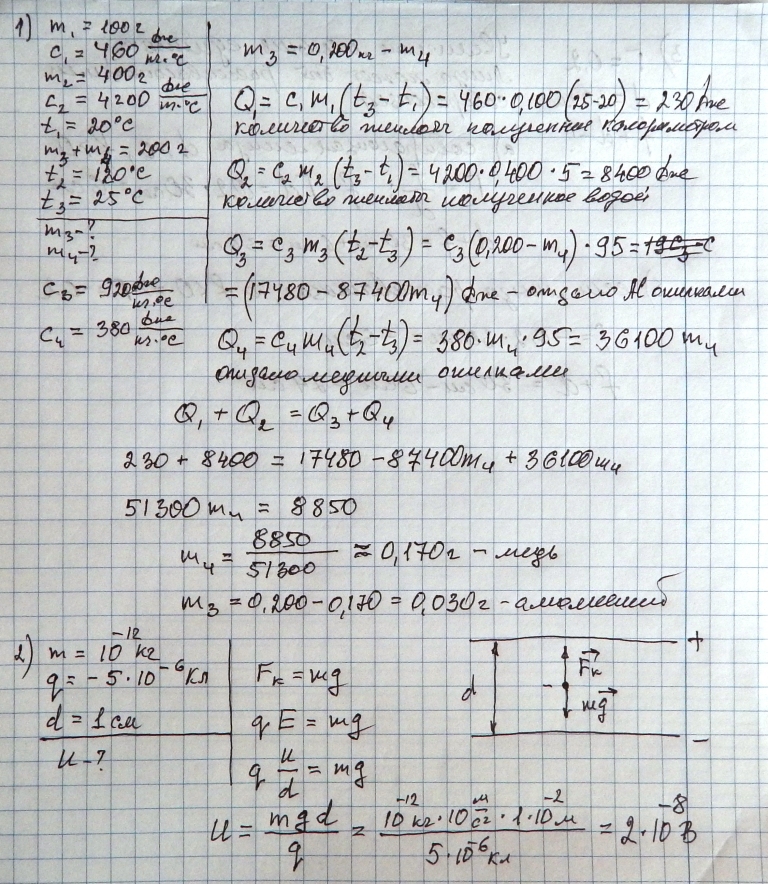 1) m₁ = 100г
c₁ = 460 Дж/кг·°С
m₂ = 400г
c₂ = 4200 Дж/кг·°С
t₁ = 20°С
m₃ + m₄ = 200г
t₂ = 120°С
t₃ = 25°С
m₃ - ?
m₄ - ?
c₃ = 920 Дж/кг·°С
c₄ = 380 Дж/кг·°С
m₃ = 0,200кг - m₄
Q₁ = c₁ m₁ (t₃ - t₁) = 460·0,100 (25-20) = 230 Дж
количество теплоты полученное калориметром
Q₂ = c₂ m₂ (t₃ - t₁) = 4200·0,400·5 = 8400 Дж
количество теплоты полученное водой
Q₃ = c₃ m₃ (t₂ - t₃) = c₃ (0,200 - m₄)·95 =
= (17480 - 87400m₄) Дж - отдано Al опилками
Q₄ = c₄ m₄ (t₂ - t₃) = 380·m₄·95 = 36100 m₄
отдано медными опилками
Q₁ + Q₂ = Q₃ + Q₄
230 + 8400 = 17480 - 87400m₄ + 36100m₄
51300 m₄ = 8850
m₄ = 8850/51300 ≈ 0,170г - медь
m₃ = 0,200 - 0,170 = 0,030г - алюминий
2) m = 10⁻¹² кг
q = -5·10⁻⁶ Кл
d = 1 см
U - ?
Fк = mg
q E = mg
q U/d = mg
U = mgd/q = 10⁻¹² кг·10 м/с²·1·10⁻² м / 5·10⁻⁶ кл = 2·10⁻⁸ В
+
d
Fк
-
mg
-